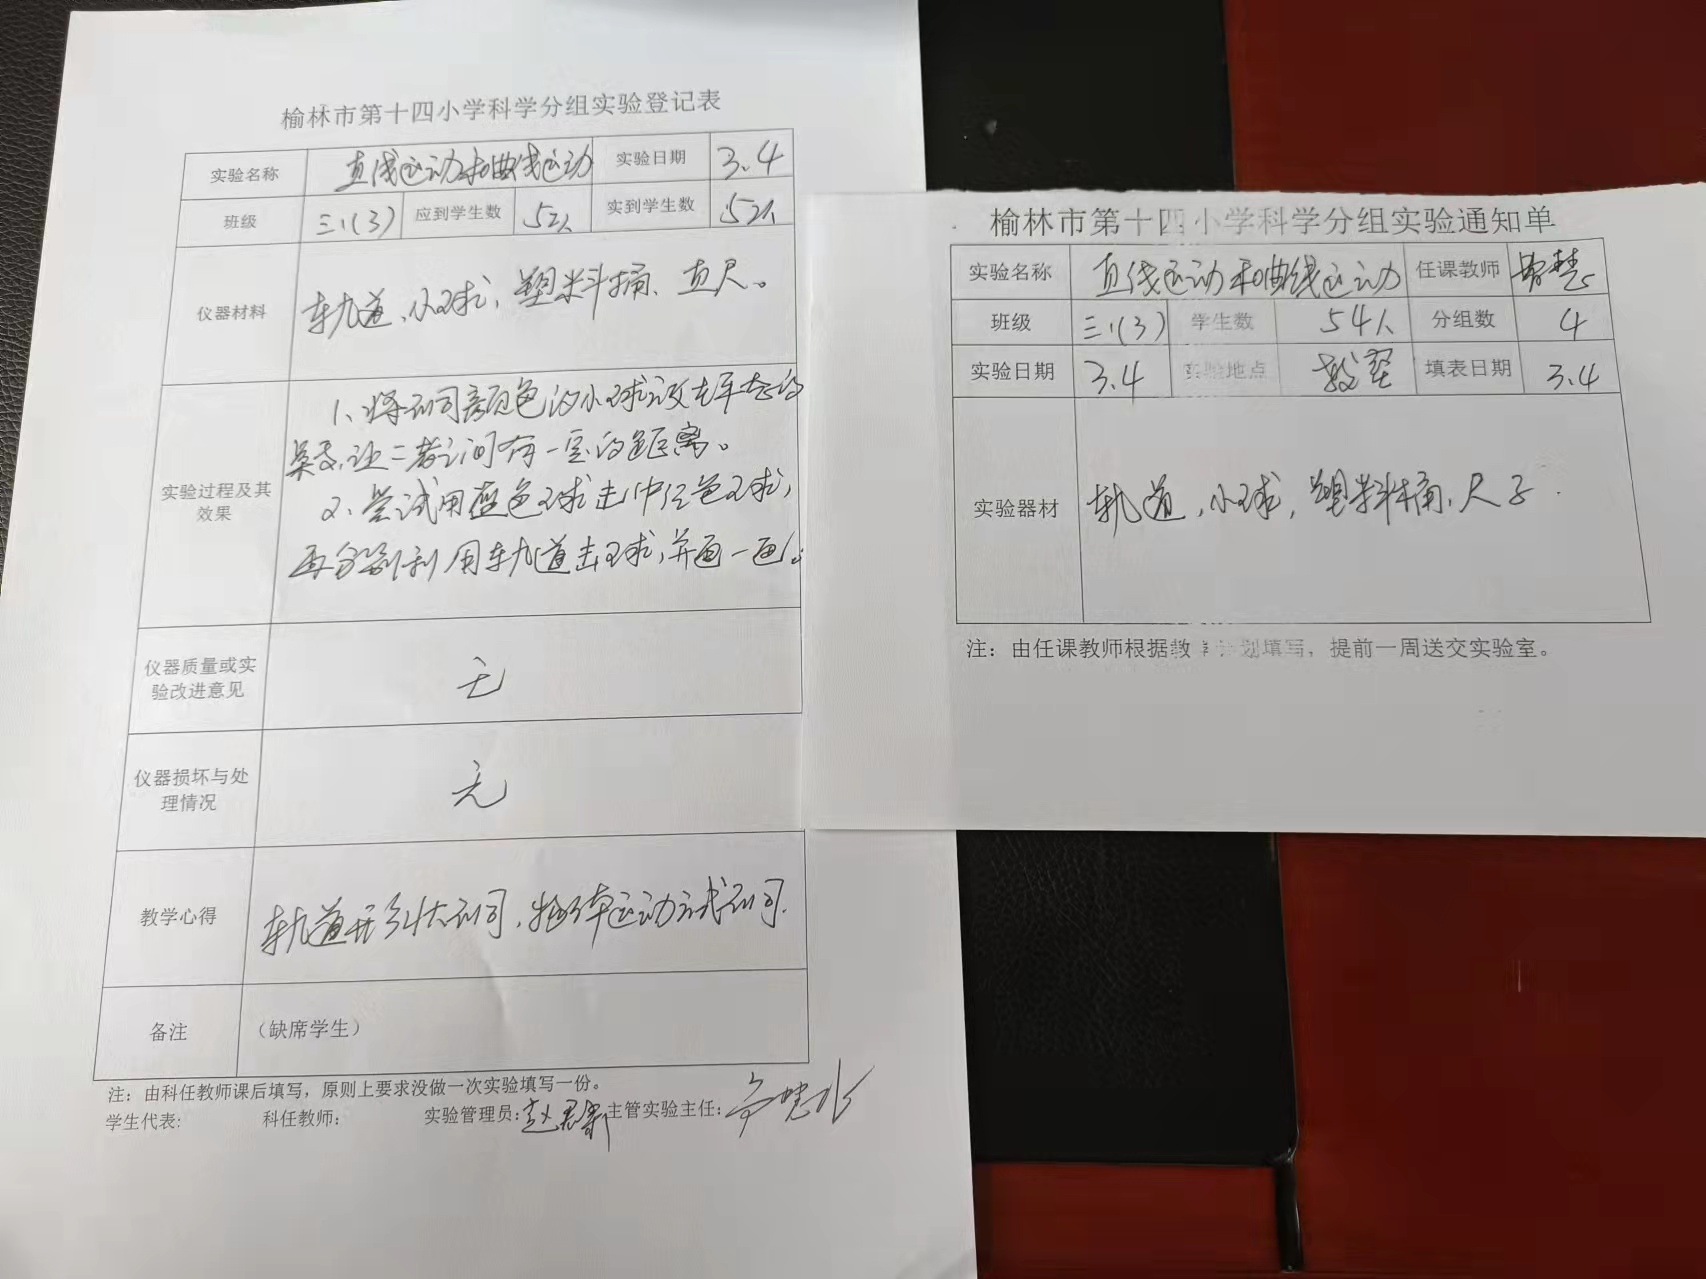 榆林市第十四小学科学分组实验登记表
实验名称 直线运动和曲线运动 实验日期 3.4
班级 三(3) 应到学生数 52人 实到学生数 52人
仪器材料 轨道、小球、塑料桶、直尺。
实验过程及其效果
1、将不同颜色的小球放在平态的
桌面,让二者之间有一定的距离。
2、尝试用蓝色球击中红色球,
再分别利用轨道击球,并画一画。
仪器质量或实验改进意见 无
仪器损坏与处理情况 无
教学心得 轨道形状不同,物体运动方式不同.
备注 (缺席学生)
注:由科任教师课后填写,原则上要求没做一次实验填写一份。
学生代表: 科任教师: 实验管理员: 主管实验主任:
榆林市第十四小学科学分组实验通知单
实验名称 直线运动和曲线运动 任课教师
班级 三(3) 学生数 54人 分组数 4
实验日期 3.4 实验地点 教室 填表日期 3.4
实验器材 轨道,小球,塑料桶,尺子.
注:由任课教师根据教学计划填写,提前一周送交实验室。